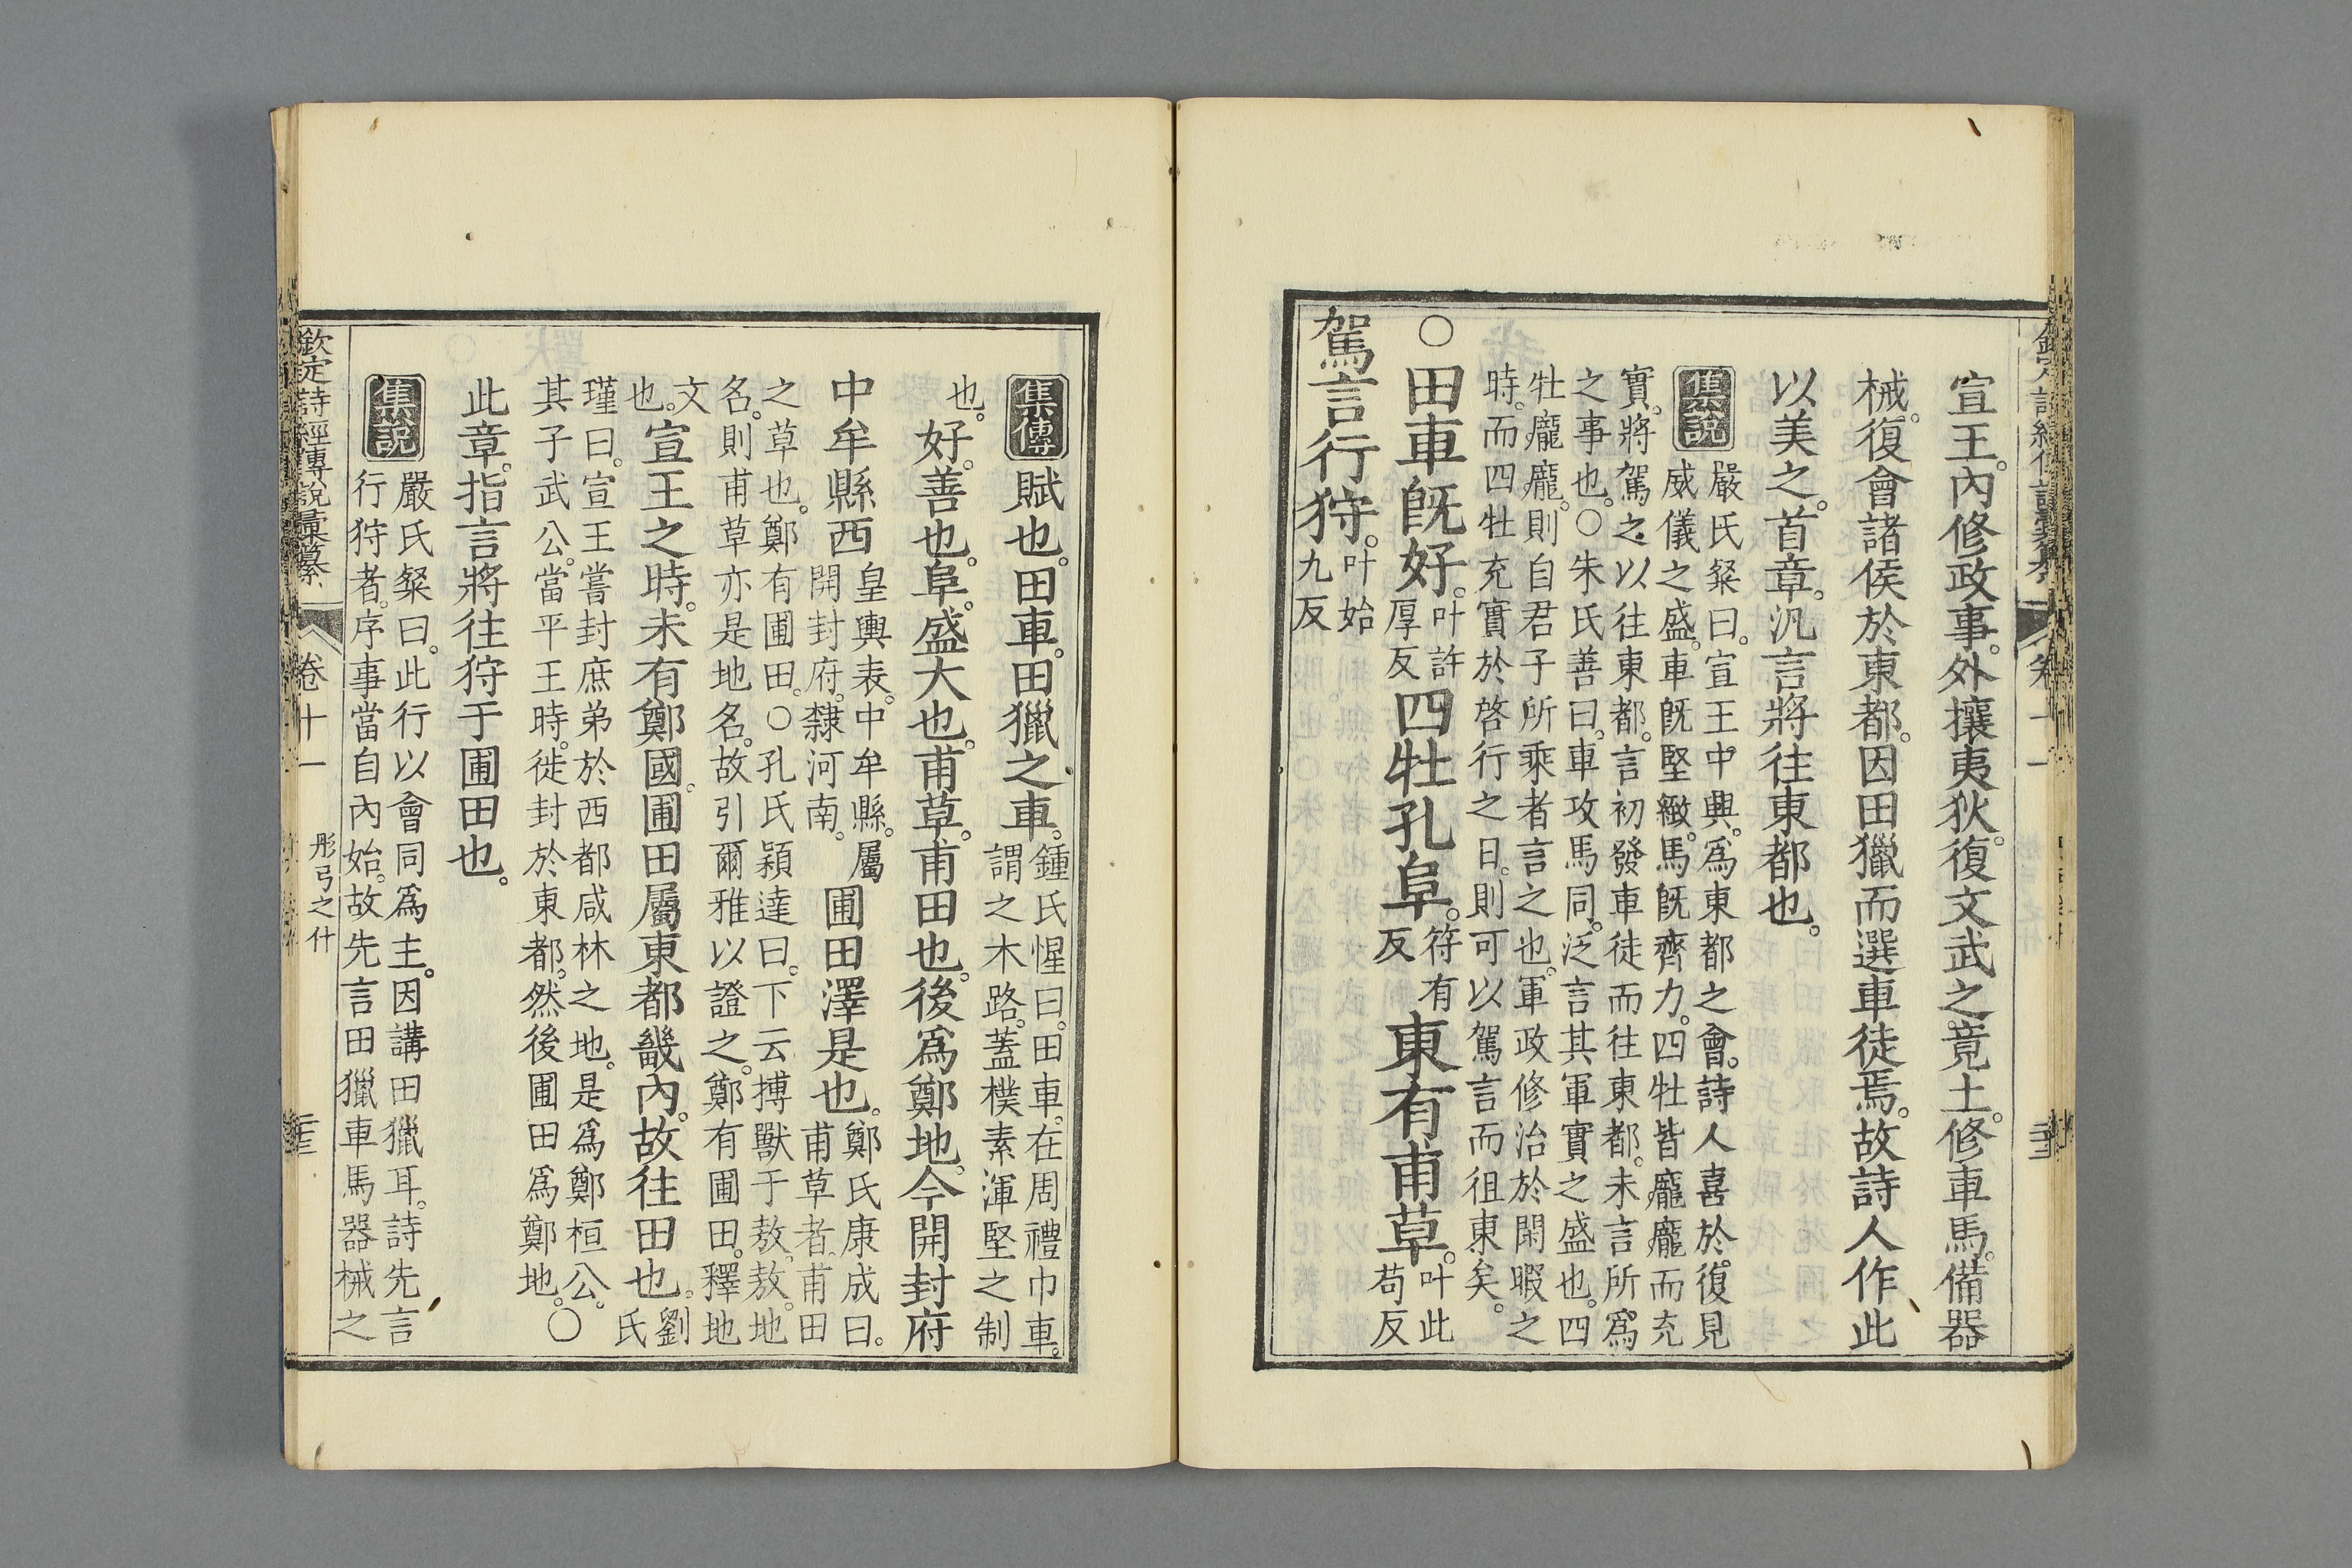 宣王。內修政事。外攘夷狄。復文武之竟土。修車馬。備器
械。復會諸侯於東都。因田獵而選車徒焉。故詩人作此
以美之。首章。汎言將往東都也。
集說
嚴氏粲曰。宣王中興。爲東都之會。詩人喜於復見
威儀之盛。車旣堅緻。馬旣齊力。四牡皆龐龐而充
實。將駕之以往東都。言初發車徒而往東都。未言所爲
之事也。○朱氏善曰。車攻馬同。泛言其軍實之盛也。四
牡龐龐。則自君子所乘者言之也。軍政修治於閑暇之
時。而四牡充實於啓行之日。則可以駕言而徂東矣。
○田車旣好。叶許厚反四牡孔阜。符有反東有甫草。叶此苟反
駕言行狩。叶始九反
集傳
賦也。田車。田獵之車。鍾氏惺曰。田車。在周禮巾車。謂之木路。蓋樸素渾堅之制
也。好。善也。阜。盛大也。甫草。甫田也。後爲鄭地。今開封府
中牟縣西皇輿表。中牟縣。屬開封府。隸河南。圃田澤是也。鄭氏康成曰。甫草者。甫田
之草也。鄭有圃田。○孔氏穎達曰。下云搏獸于敖。敖。地
名。則甫草亦是地名。故引爾雅以證之。鄭有圃田。釋地
文也。宣王之時。未有鄭國。圃田屬東都畿內。故往田也。劉氏
瑾曰。宣王嘗封庶弟於西都咸林之地。是爲鄭桓公。○
其子武公。當平王時。徙封於東都。然後圃田爲鄭地。
此章。指言將往狩于圃田也。
集說
嚴氏粲曰。此行以會同爲主。因講田獵耳。詩先言
行狩者。序事當自內始。故先言田獵車馬器械之
欽定詩經傳說彙纂
卷十一
彤弓之什